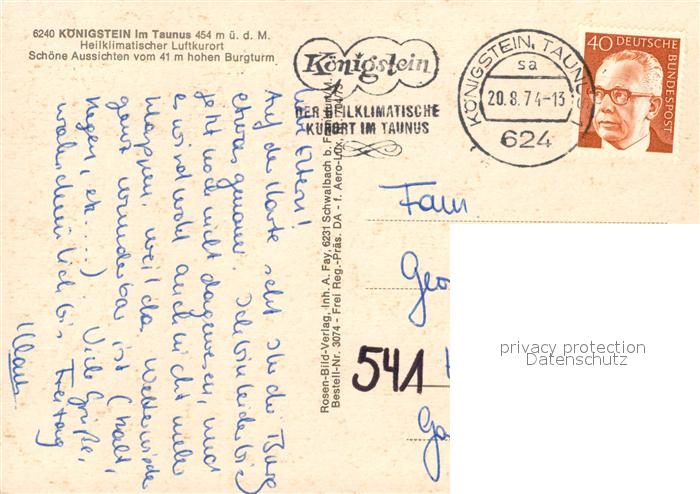 6240 KÖNIGSTEIN im Taunus 454 m ü. d. M.
Heilklimatischer Luftkurort
Schöne Aussichten vom 41 m hohen Burgturm
Königstein
DER HEILKLIMATISCHE
KURORT IM TAUNUS
KÖNIGSTEIN, TAUNUS
sa
20.8.74-13
624
40 DEUTSCHE
BUNDESPOST
Liebe Eltern!
Auf der Karte seht Ihr die Burg
etwas genauer. Ich bin leider bis
jetzt noch nicht dagewesen, und
es wird wohl auch nicht mehr
klappen, weil das Wetter nicht
ganz wunderbar ist (kalt,
Regen, etc...) Viele Grüße,
wahrscheinlich bis Freitag
Klaus
Rosen-Bild-Verlag, Inh. A. Fay, 6231 Schwalbach b.
Bestell-Nr. 3074 - Frei Reg.-Präs. DA - f. Aero-Lux,
Fam.
Geo
541
Ga
privacy protection
Datenschutz